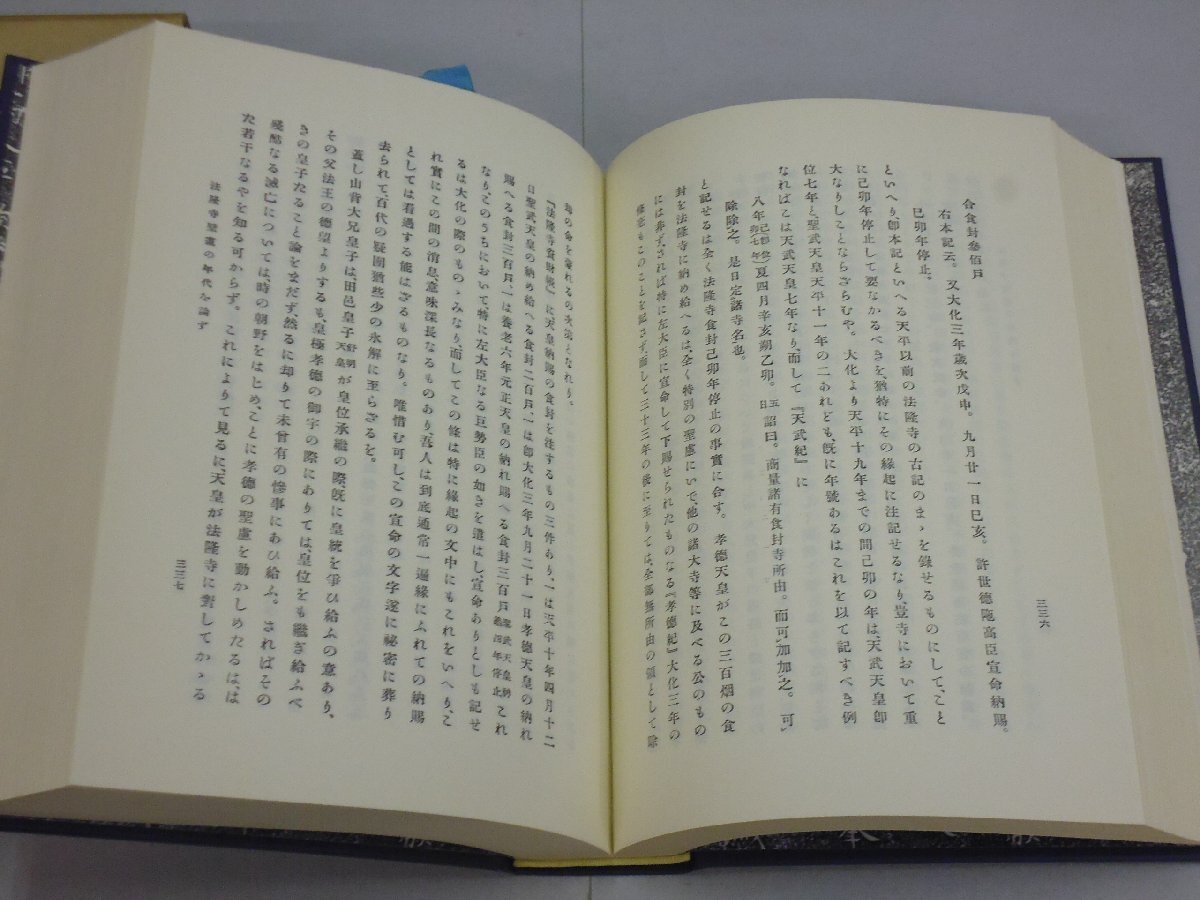 三三六
合食封參佰戸
右本記云。又大化三年歳次戊申。九月廿一日己亥。許世徳陁高臣宣命納賜。
己卯年停止。
といへり、卽本記といへる天平以前の法隆寺の古記のまゝを錄せるものにして、こと
に己卯年停止して要なかるべきを、猶特にその緣起に注記せるなり、豈寺において重
大なりしことならざらむや。大化より天平十九年までの間己卯の年は、天武天皇卽
位七年と、聖武天皇天平十一年の二あれども、既に年號あるはこれを以て記すべき例
なればこは天武天皇七年なり、而して『天武紀』に
八年己卯(卽位七年)夏四月辛亥朔乙卯。五日詔曰。商量諸有食封寺所由。而可加加之。可
除除之。是日定諸寺名也。
と記せるは全く法隆寺食封己卯年停止の事實に合す。孝德天皇がこの三百烟の食
封を法隆寺に納め給へるは、全く特別の聖慮にいで、他の諸大寺等に及べる公のもの
には非ず、されば特に左大臣に宣命して下賜せられたものなる『孝德紀』大化三年の
條にもこのことを記さず、而して三十三年の後に至りては、全部無所由の領として除
却の命を蒙れるの次第となれり。
『法隆寺食財帳』に天皇納賜の食封を注するもの三件あり、一は天平十年四月十二
日聖武天皇の納め給へる食封二百戸、一は卽大化三年九月二十一日孝德天皇の納れ
賜へる食封三百戸、一は養老六年元正天皇の納れ賜へる食封三百戸聖武天皇朝神龜四年停止これ
なり、このうちにおいて特に左大臣なる巨勢臣の如きを遣はし、宣命ありとしも記せ
るは大化の際のものゝみなり、而してこの條は特に緣起の文中にもこれをいへり、こ
れ實にこの間の消息、意味深長なるものあり、吾人は到底通常一遍緣にふれての納賜
としては看過する能はざるものなり。唯惜む可し、この宣命の文字遂に祕密に葬り
去られて、百代の疑團猶些少の氷解に至らざるを。
蓋し山背大兄皇子は、田邑皇子舒明天皇が皇位承繼の際、既に皇統を爭ひ給ふの意あり、
その父法王の德望よりするも、皇極孝德の御宇の際にありては、皇位をも繼ぎ給ふべ
きの皇子たること論をまたず、然るに却りて未曾有の慘事にあひ給ふ。さればその
殘酷なる滅亡については、時の朝野をはじめ、ことに孝德の聖慮を動かしめたるは、は
た若干なるやを知る可からず。これによりて見るに、天皇が法隆寺に對してかゝる
法隆寺堅盧の年代を論ず
三三七